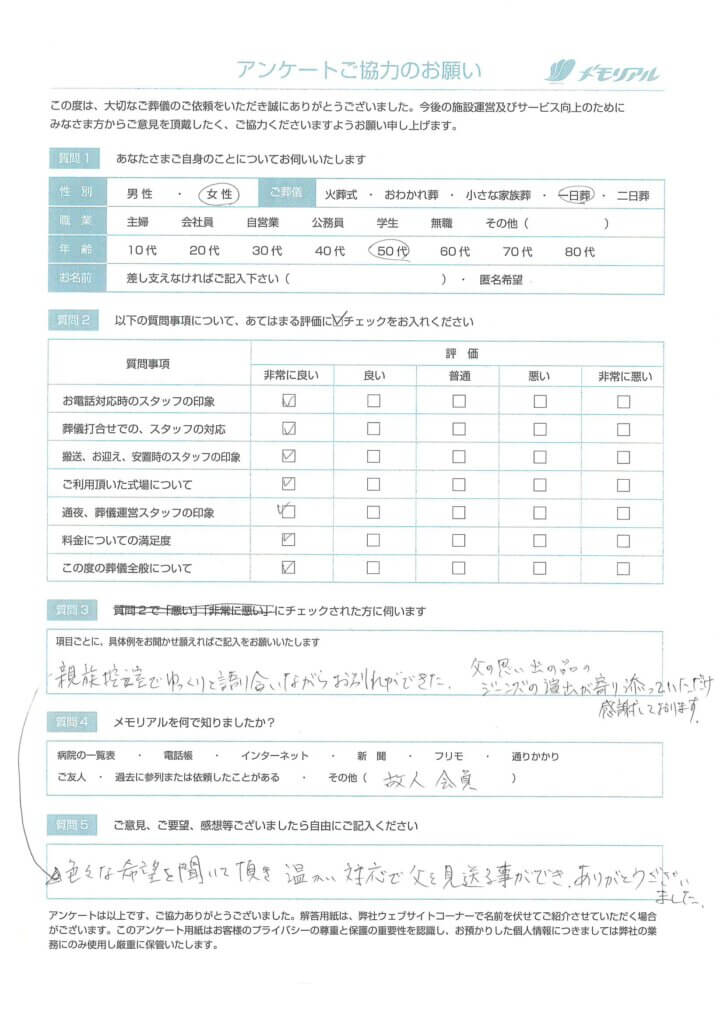 アンケートご協力のお願い
メモリアル
この度は、大切なご葬儀のご依頼をいただき誠にありがとうございました。今後の施設運営及びサービス向上のために
みなさま方からご意見を頂戴したく、ご協力くださいますようお願い申し上げます。
質問1 あなたさまご自身のことについてお伺いいたします
性別 男性 ・ 女性 ご葬儀 火葬式 ・ おわかれ葬 ・ 小さな家族葬 ・ 一日葬 ・ 二日葬
職業 主婦 会社員 自営業 公務員 学生 無職 その他( )
年齢 10代 20代 30代 40代 50代 60代 70代 80代
お名前 差し支えなければご記入下さい( ) ・ 匿名希望
質問2 以下の質問事項について、あてはまる評価に✓チェックをお入れください
質問事項 評価
非常に良い 良い 普通 悪い 非常に悪い
お電話対応時のスタッフの印象 ☑ □ □ □ □
葬儀打合せでの、スタッフの対応 ☑ □ □ □ □
搬送、お迎え、安置時のスタッフの印象 ☑ □ □ □ □
ご利用頂いた式場について ☑ □ □ □ □
通夜、葬儀運営スタッフの印象 ☑ □ □ □ □
料金についての満足度 ☑ □ □ □ □
この度の葬儀全般について ☑ □ □ □ □
質問3 質問2で「悪い」「非常に悪い」にチェックされた方に伺います
項目ごとに、具体例をお聞かせ願えればご記入をお願いいたします
親族控室でゆっくりと語り合いながらお別れができた。
父の思い出の品の
ジーンズの演出が寄り添っていただけ
感謝しております。
質問4 メモリアルを何で知りましたか?
病院の一覧表 ・ 電話帳 ・ インターネット ・ 新聞 ・ フリモ ・ 通りかかり
ご友人 ・ 過去に参列または依頼したことがある ・ その他( 故人会員 )
質問5 ご意見、ご要望、感想等ございましたら自由にご記入ください
色々な希望を聞いて頂き温かい対応で父を見送る事ができ、ありがとうござい
ました。
アンケートは以上です、ご協力ありがとうございました。解答用紙は、弊社ウェブサイトコーナーで名前を伏せてご紹介させていただく場合
がございます。このアンケート用紙はお客様のプライバシーの尊重と保護の重要性を認識し、お預かりした個人情報につきましては弊社の業
務にのみ使用し厳重に保管いたします。